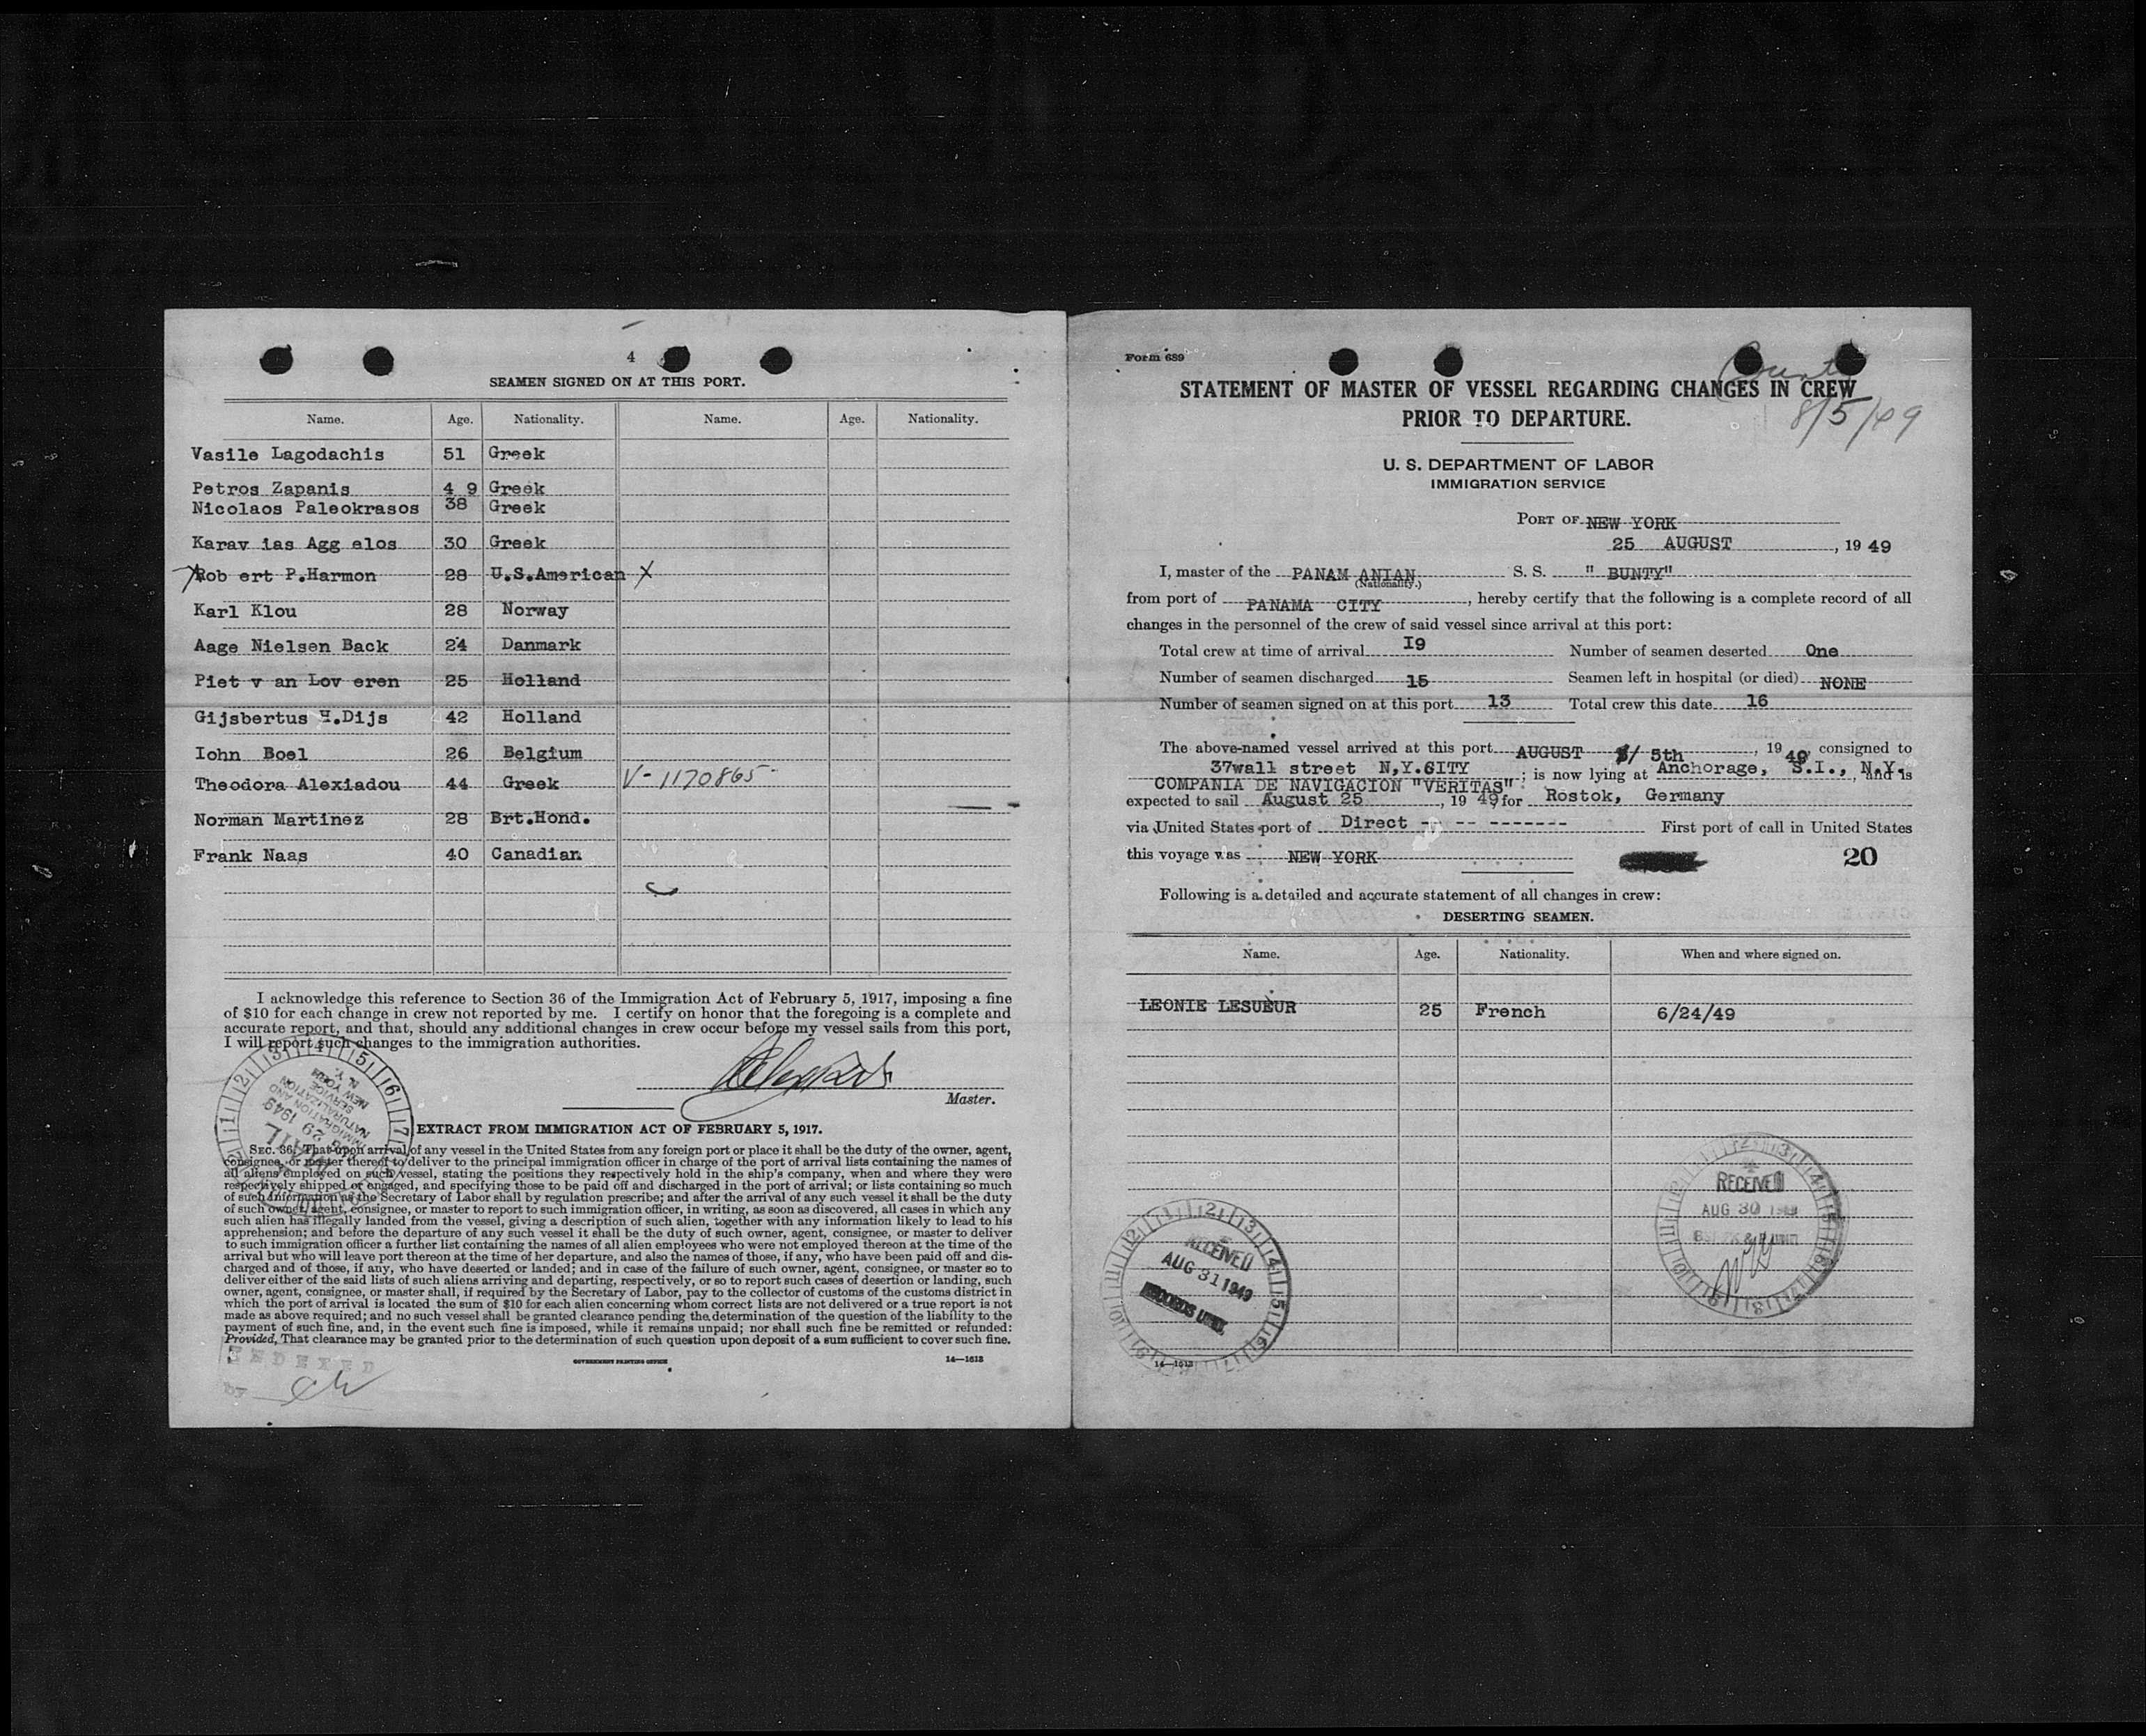 4
SEAMEN SIGNED ON AT THIS PORT.
Name. Age. Nationality. Name. Age. Nationality.
Vasile Lagodachis 51 Greek
Petros Zapanis 4 9 Greek
Nicolaos Paleokrasos 38 Greek
Karav ias Agg elos 30 Greek
X Rob ert P.Harmon 28 U.S.American X
Karl Klou 28 Norway
Aage Nielsen Back 24 Danmark
Piet v an Lov eren 25 Holland
Gijsbertus H.Dijs 42 Holland
Iohn Boel 26 Belgium
Theodora Alexiadou 44 Greek V-1170865-
Norman Martinez 28 Brt.Hond.
Frank Naas 40 Canadian
I acknowledge this reference to Section 36 of the Immigration Act of February 5, 1917, imposing a fine
of $10 for each change in crew not reported by me. I certify on honor that the foregoing is a complete and
accurate report, and that, should any additional changes in crew occur before my vessel sails from this port,
I will report such changes to the immigration authorities.
Master.
IMMIGRATION AND
NATURALIZATION
SERVICE
NEW YORK
N. Y.
29 1949
EXTRACT FROM IMMIGRATION ACT OF FEBRUARY 5, 1917.
SEC. 36. That upon arrival of any vessel in the United States from any foreign port or place it shall be the duty of the owner, agent,
consignee, or master thereof to deliver to the principal immigration officer in charge of the port of arrival lists containing the names of
all aliens employed on such vessel, stating the positions they respectively hold in the ship's company, when and where they were
respectively shipped or engaged, and specifying those to be paid off and discharged in the port of arrival; or lists containing so much
of such information as the Secretary of Labor shall by regulation prescribe; and after the arrival of any such vessel it shall be the duty
of such owner, agent, consignee, or master to report to such immigration officer, in writing, as soon as discovered, all cases in which any
such alien has illegally landed from the vessel, giving a description of such alien, together with any information likely to lead to his
apprehension; and before the departure of any such vessel it shall be the duty of such owner, agent, consignee, or master to deliver
to such immigration officer a further list containing the names of all alien employees who were not employed thereon at the time of the
arrival but who will leave port thereon at the time of her departure, and also the names of those, if any, who have been paid off and dis-
charged and of those, if any, who have deserted or landed; and in case of the failure of such owner, agent, consignee, or master so to
deliver either of the said lists of such aliens arriving and departing, respectively, or so to report such cases of desertion or landing, such
owner, agent, consignee, or master shall, if required by the Secretary of Labor, pay to the collector of customs of the customs district in
which the port of arrival is located the sum of $10 for each alien concerning whom correct lists are not delivered or a true report is not
made as above required; and no such vessel shall be granted clearance pending the determination of the question of the liability to the
payment of such fine, and, in the event such fine is imposed, while it remains unpaid; nor shall such fine be remitted or refunded:
Provided, That clearance may be granted prior to the determination of such question upon deposit of a sum sufficient to cover such fine.
GOVERNMENT PRINTING OFFICE 14—1613
INDEXED
by
Form 689
Bunty
8/5/49
STATEMENT OF MASTER OF VESSEL REGARDING CHANGES IN CREW
PRIOR TO DEPARTURE.
U. S. DEPARTMENT OF LABOR
IMMIGRATION SERVICE
PORT OF NEW YORK
25 AUGUST, 19 49
I, master of the PANAM ANIAN S. S. " BUNTY"
(Nationality.)
from port of PANAMA CITY, hereby certify that the following is a complete record of all
changes in the personnel of the crew of said vessel since arrival at this port:
Total crew at time of arrival I9 Number of seamen deserted One
Number of seamen discharged 15 Seamen left in hospital (or died) NONE
Number of seamen signed on at this port 13 Total crew this date 16
The above-named vessel arrived at this port AUGUST 5th, 19 49, consigned to
37wall street N,Y.CITY; is now lying at Anchorage, S.I., N.Y., and is
COMPANIA DE NAVIGACION "VERITAS"
expected to sail August 25, 19 49 for Rostok, Germany
via United States port of Direct - -- ------- First port of call in United States
this voyage was NEW YORK 20
Following is a detailed and accurate statement of all changes in crew:
DESERTING SEAMEN.
Name. Age. Nationality. When and where signed on.
LEONIE LESUEUR 25 French 6/24/49
RECEIVED
AUG 30 1949
RECEIVED
AUG 31 1949
RECORDS UNIT
14—1613